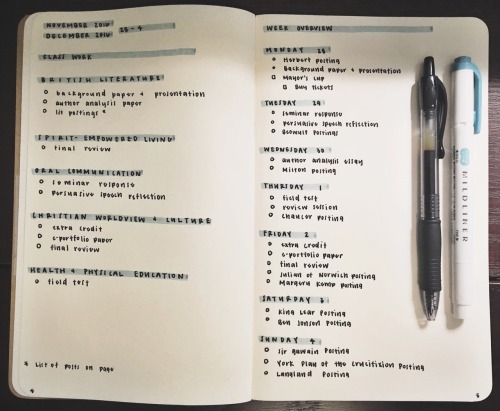 NOVEMBER 2016
DECEMBER 2016
28-4
CLASS WORK
BRITISH LITERATURE
background paper + presentation
author analysis paper
lit postings *
SPIRIT-EMPOWERED LIVING
final review
ORAL COMMUNICATION
seminar response
persuasive speech reflection
CHRISTIAN WORLDVIEW + CULTURE
extra credit
e-portfolio paper
final review
HEALTH + PHYSICAL EDUCATION
field test
* List of posts on page
WEEK OVERVIEW
MONDAY 28
Herbert posting
Background paper + presentation
Mayor's Cup
Buy tickets
TUESDAY 29
seminar response
persuasive speech reflection
Beowulf postings
WEDNESDAY 30
author analysis essay
Milton posting
THURSDAY 1
field test
review session
Chaucer posting
FRIDAY 2
extra credit
e-portfolio paper
final review
Julian of Norwich posting
Margery Kemp posting
SATURDAY 3
King Lear posting
Ben Jonson posting
SUNDAY 4
Sir Gawain posting
York Play of the Crucifixion posting
Langland posting
MILDLINER